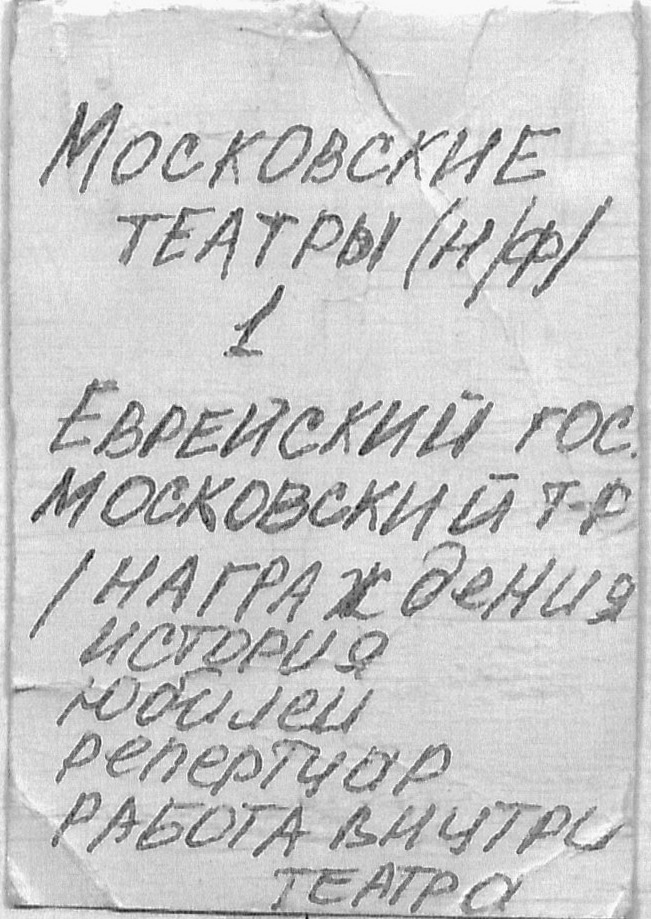 МОСКОВСКИЕ
ТЕАТРЫ /Н/Ф/
1
ЕВРЕЙСКИЙ ГОС.
МОСКОВСКИЙ Т-Р
/НАГРАЖДЕНИЯ
ИСТОРИЯ
ЮБИЛЕИ
РЕПЕРТУАР
РАБОТА ВНУТРИ
ТЕАТРА